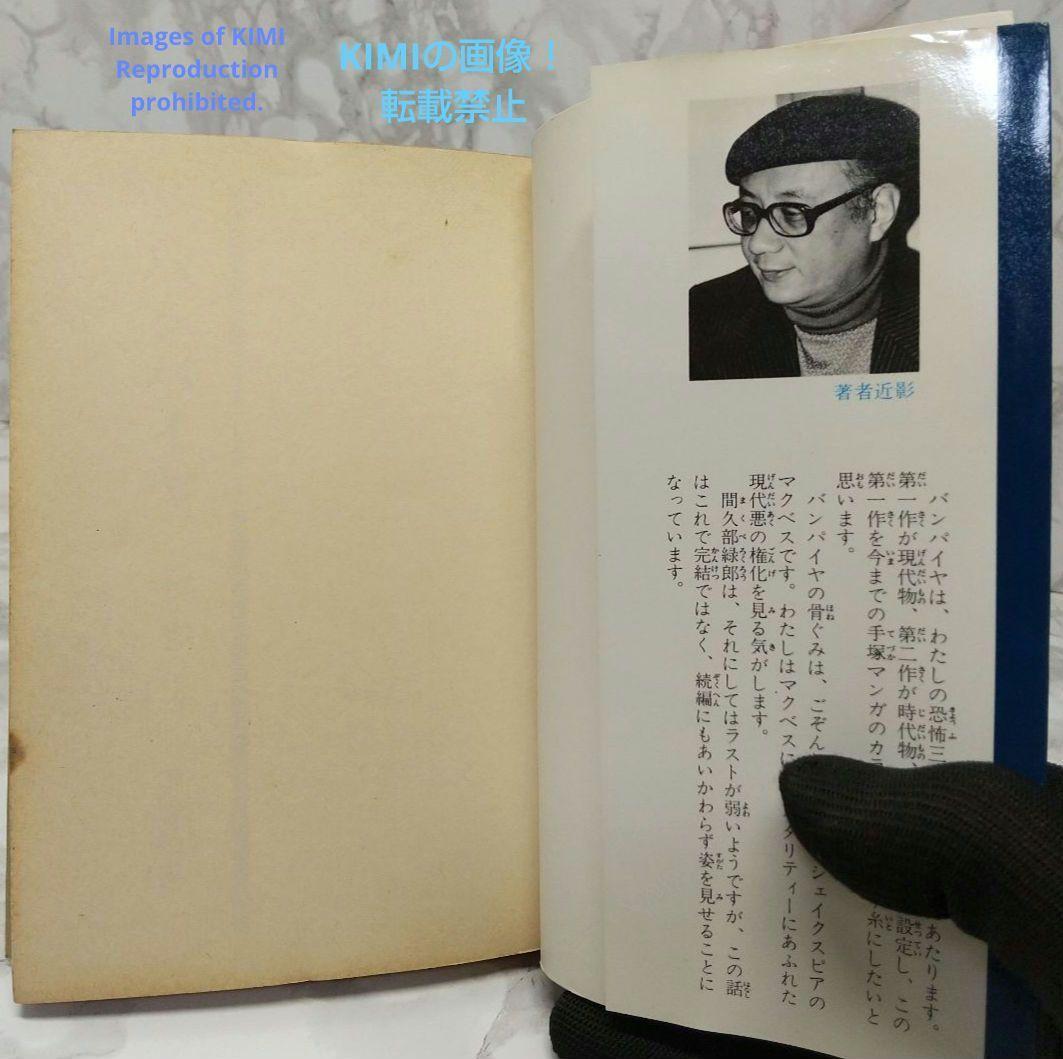 Images of KIMI
Reproduction
prohibited.
KIMIの画像！
転載禁止
著者近影
バンパイヤは、わたしの恐怖三あたります。
第一作が現代物、第二作が時代物、設定し、この
第一作を今までの手塚マンガのカラ糸にしたいと
思います。
バンパイヤの骨ぐみは、ごぞんシェイクスピアの
マクベスです。わたしはマクベスにタリティーにあふれた
現代悪の権化を見る気がします。
間久部緑郎は、それにしてはラストが弱いようですが、この話
はこれで完結ではなく、続編にもあいかわらず姿を見せることに
なっています。